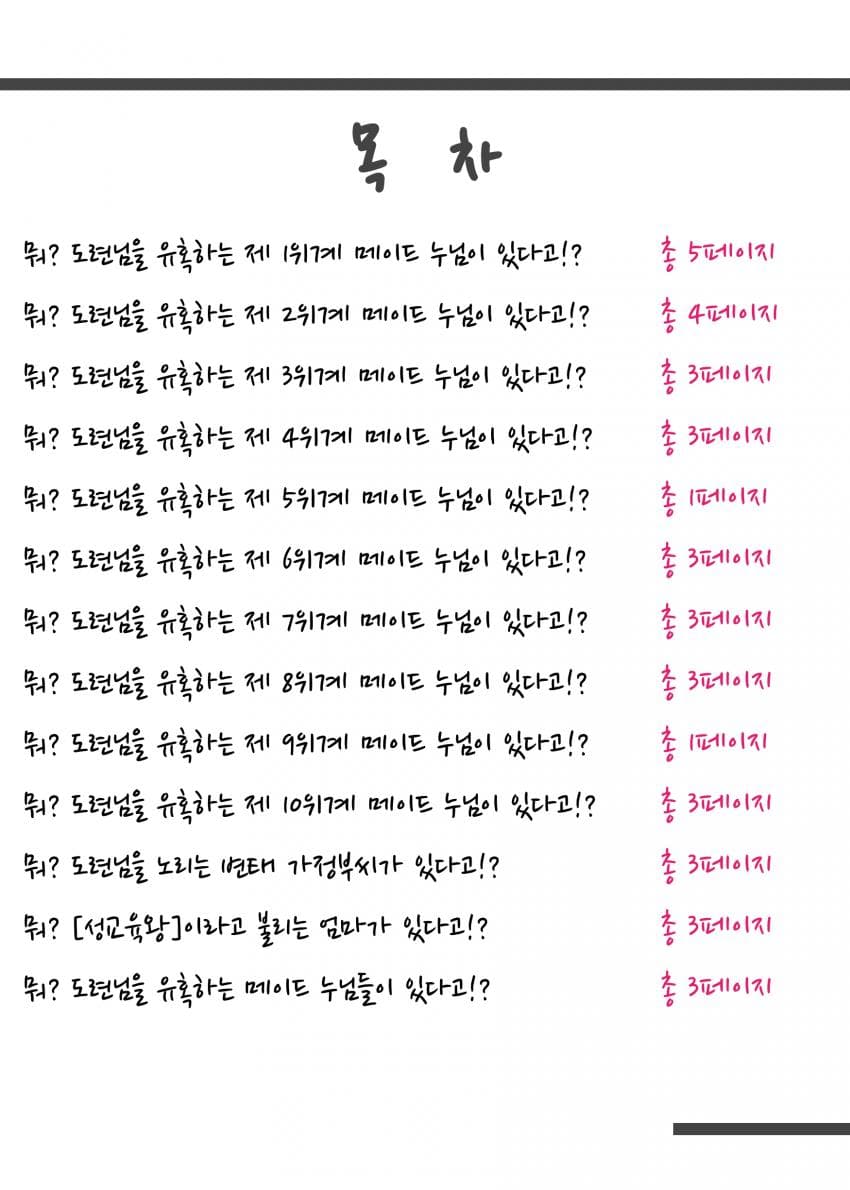 목 차
뭐? 도련님을 유혹하는 제 1위계 메이드 누님이 있다고!? 총 5페이지
뭐? 도련님을 유혹하는 제 2위계 메이드 누님이 있다고!? 총 4페이지
뭐? 도련님을 유혹하는 제 3위계 메이드 누님이 있다고!? 총 3페이지
뭐? 도련님을 유혹하는 제 4위계 메이드 누님이 있다고!? 총 3페이지
뭐? 도련님을 유혹하는 제 5위계 메이드 누님이 있다고!? 총 1페이지
뭐? 도련님을 유혹하는 제 6위계 메이드 누님이 있다고!? 총 3페이지
뭐? 도련님을 유혹하는 제 7위계 메이드 누님이 있다고!? 총 3페이지
뭐? 도련님을 유혹하는 제 8위계 메이드 누님이 있다고!? 총 3페이지
뭐? 도련님을 유혹하는 제 9위계 메이드 누님이 있다고!? 총 1페이지
뭐? 도련님을 유혹하는 제 10위계 메이드 누님이 있다고!? 총 3페이지
뭐? 도련님을 노리는 변태 가정부씨가 있다고!? 총 3페이지
뭐? [성교육왕]이라고 불리는 엄마가 있다고!? 총 3페이지
뭐? 도련님을 유혹하는 메이드 누님들이 있다고!? 총 3페이지